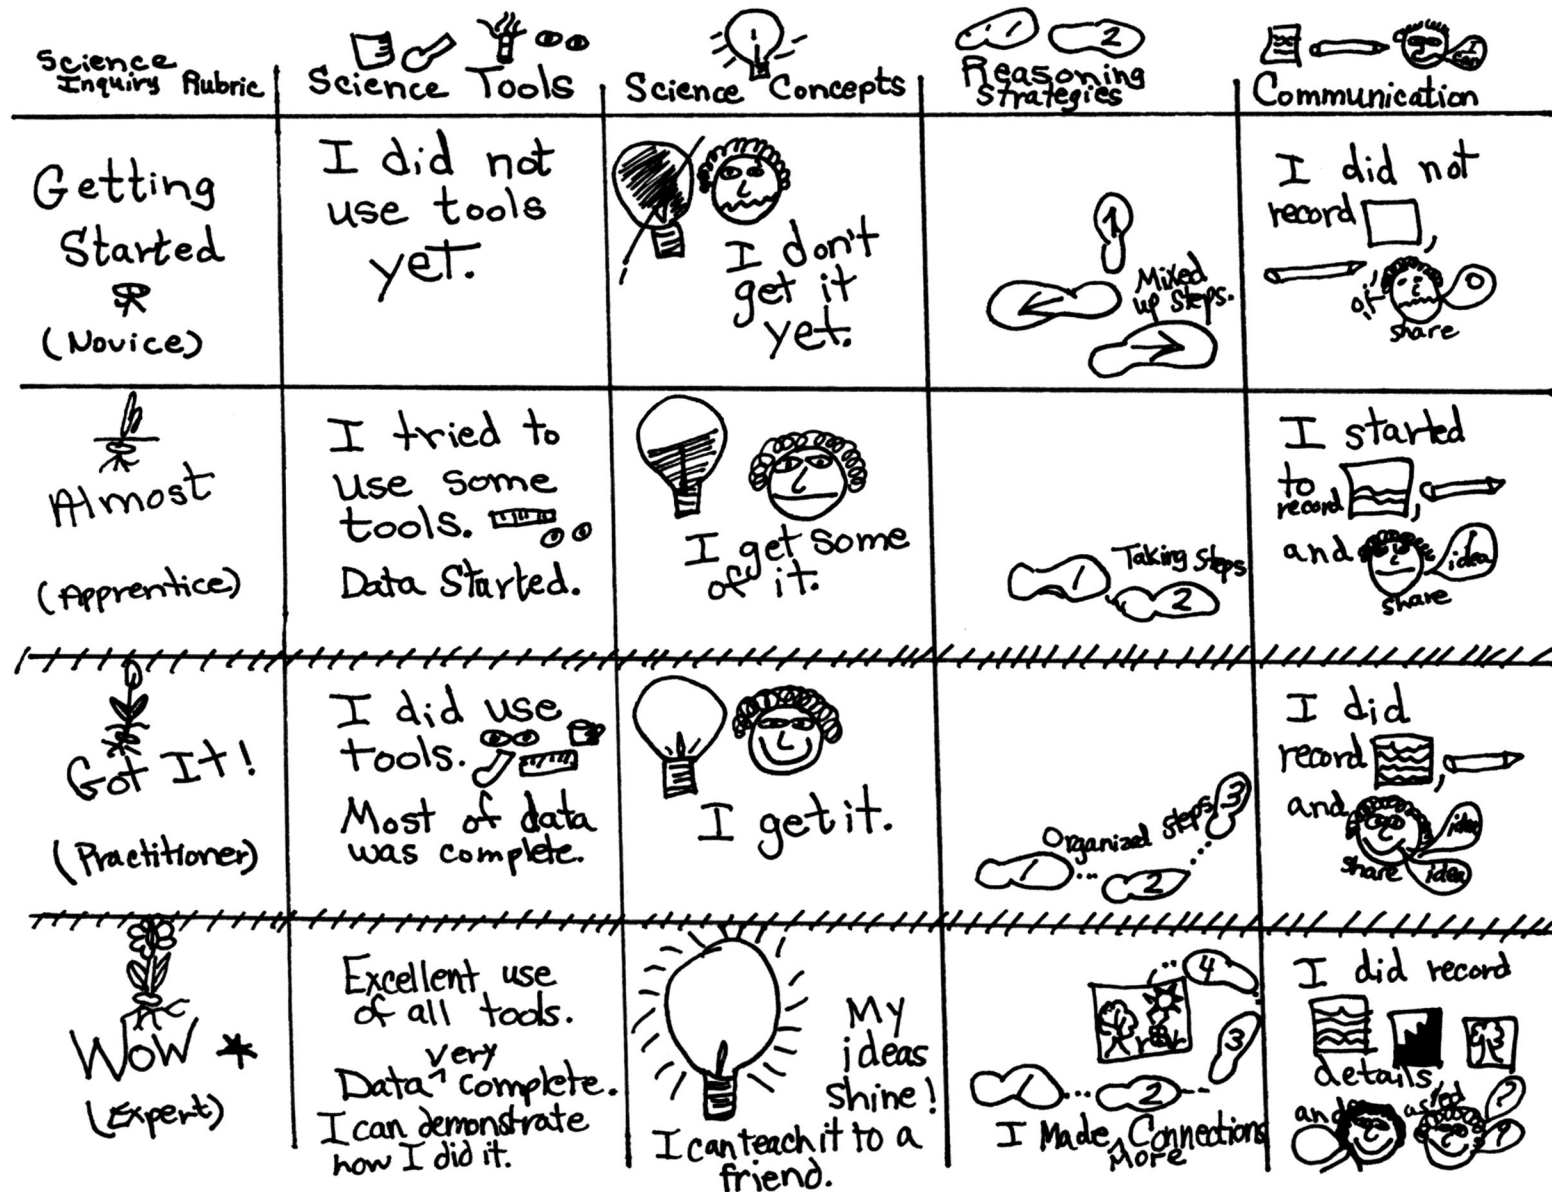 Science
Inquiry Rubric
Science Tools
Science Concepts
1 2
Reasoning
Strategies
I can
Communication
Getting
Started
(Novice)
I did not
use tools
yet.
I don't
get it
yet.
Mixed
up steps.
I did not
record ,
, or
0
share
Almost
(Apprentice)
I tried to
use some
tools.
Data Started.
I get some
of it.
1 Taking steps
2
I started
to
record ,
and
1 idea
share
Got It!
(Practitioner)
I did use
tools.
Most of data
was complete.
I get it.
Organized steps
1 2 3
I did
record ,
and
idea
share idea
WOW
(Expert)
Excellent use
of all tools.
Data very complete.
I can demonstrate
how I did it.
My
ideas
shine!
I can teach it to a
friend.
4
3
1 2
I Made More Connections
I did record
details
and asked
?
?